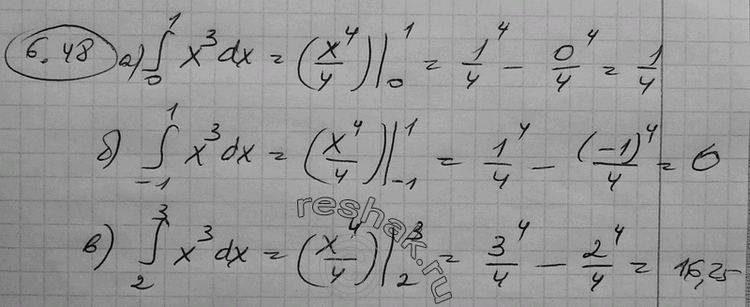 6.48 а) ∫₀¹ x³ dx = (x⁴/4)|₀¹ = 1⁴/4 − 0⁴/4 = 1/4
б) ∫₋₁¹ x³ dx = (x⁴/4)|₋₁¹ = 1⁴/4 − (−1)⁴/4 = 0
в) ∫₂³ x³ dx = (x⁴/4)|₂³ = 3⁴/4 − 2⁴/4 = 16,25
reshak.ru